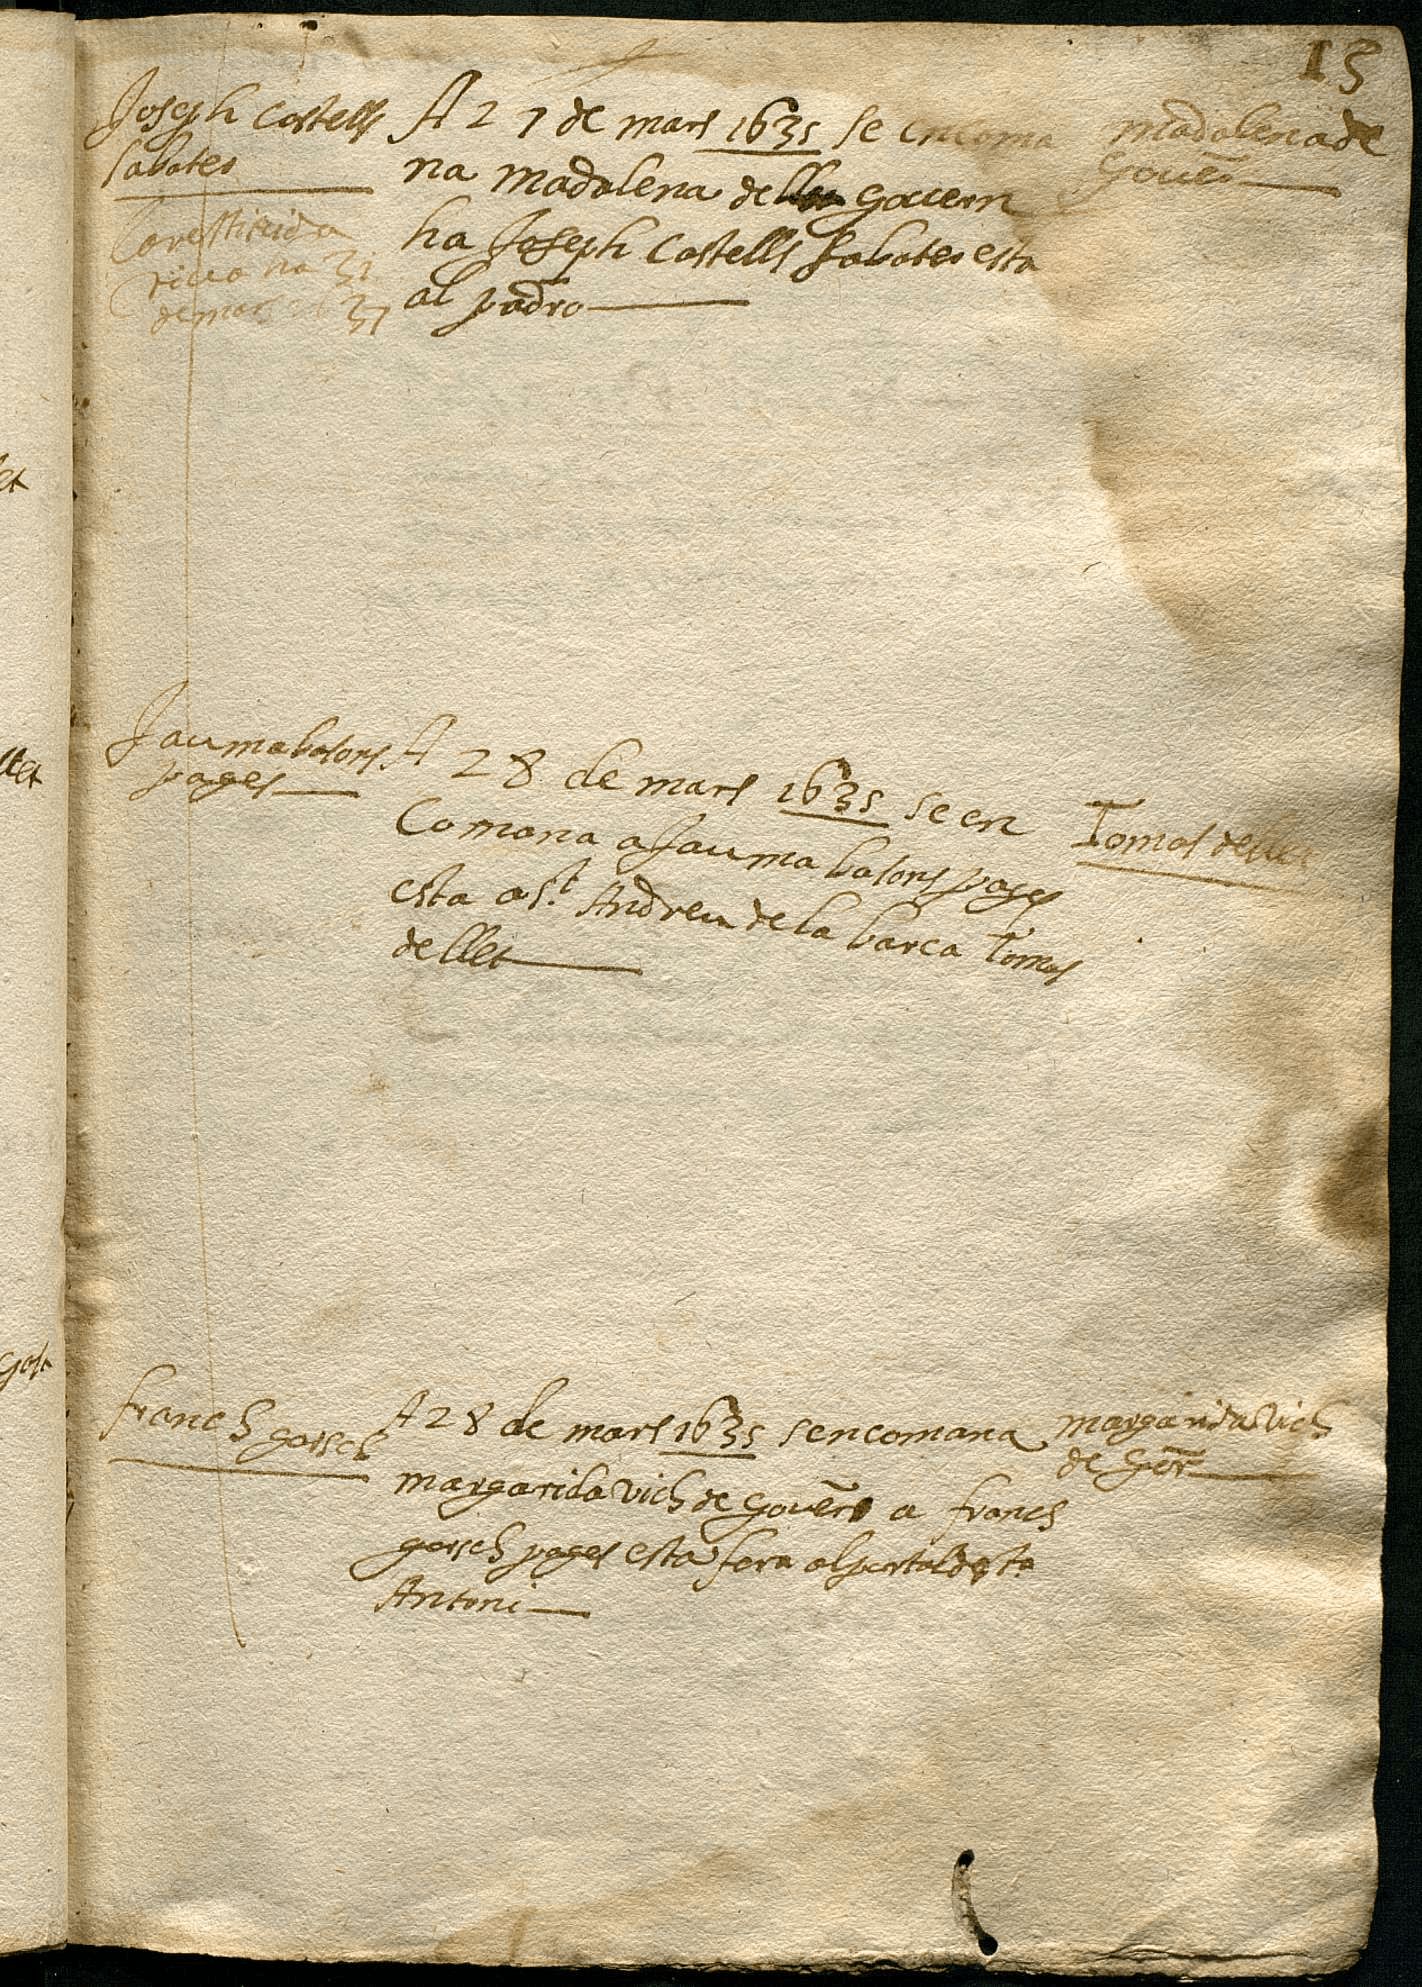 15
Joseph Castells
Sabater
La restituida
viva na 31
de mars 1637
A 27 de mars 1635 se encoma
na madalena de govern
ha Joseph Castells Sabater esta
al padro
madalena de
Govēr
Jauma basons
pages
A 28 de mars 1635 se en
Comana a Jauma basons pages
esta a St. Andreu de la barca Tomas
de llet
Tomas de llet
franch gorsch
A 28 de mars 1635 sencomana
margarida vich de govēr a franch
gorsch pages esta fora al portal de st.
Antoni
margarida vich
de Gōr